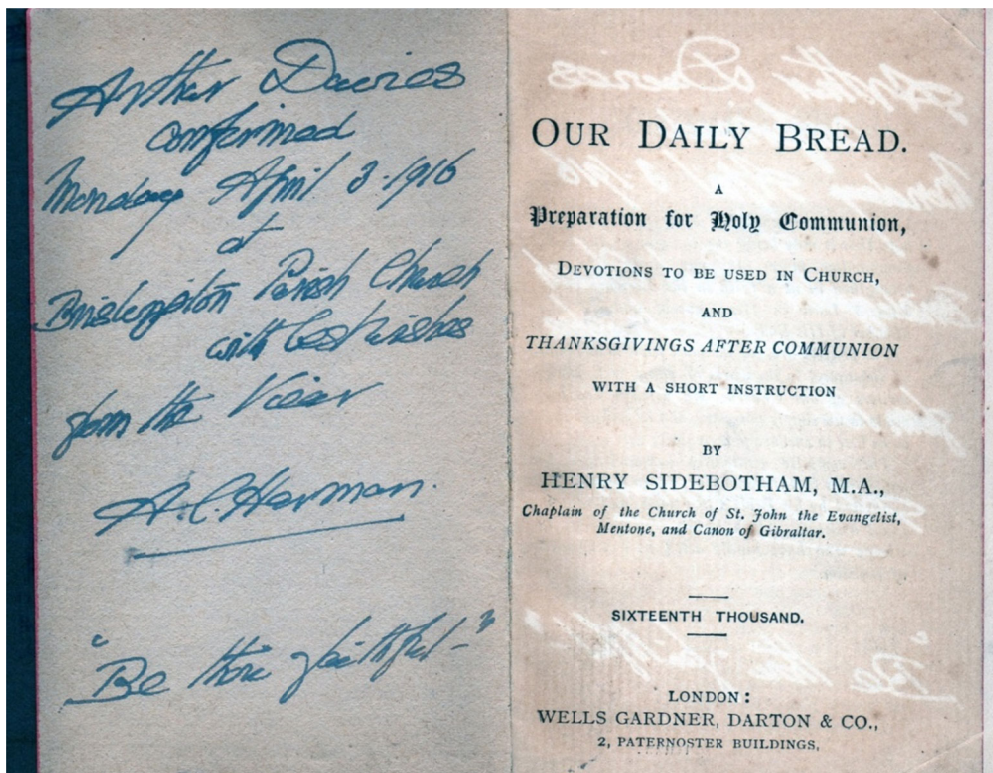 Arthur Davies
confirmed
Monday April 3. 1916
at
Brislington Parish Church
with best wishes
from the Vicar
A.C. Harman.
"Be thou faithful-"
OUR DAILY BREAD.
A
Preparation for Holy Communion,
DEVOTIONS TO BE USED IN CHURCH,
AND
THANKSGIVINGS AFTER COMMUNION
WITH A SHORT INSTRUCTION
BY
HENRY SIDEBOTHAM, M.A.,
Chaplain of the Church of St. John the Evangelist,
Mentone, and Canon of Gibraltar.
SIXTEENTH THOUSAND.
LONDON:
WELLS GARDNER, DARTON & CO.,
2, PATERNOSTER BUILDINGS.